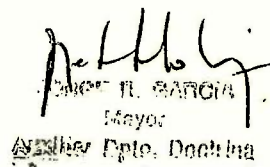 JORGE R. GARCIA
Mayor
Auxiliar Dpto. Doctrina